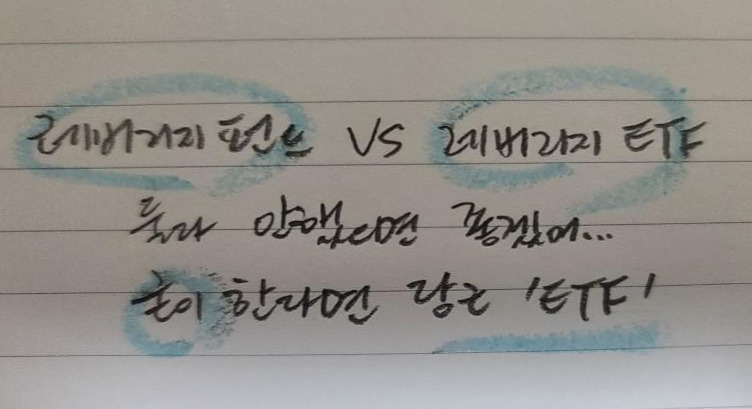 레버리지 펀드 VS 레버리지 ETF
둘다 안했으면 좋겠어...
굳이 한다면 당근 'ETF'